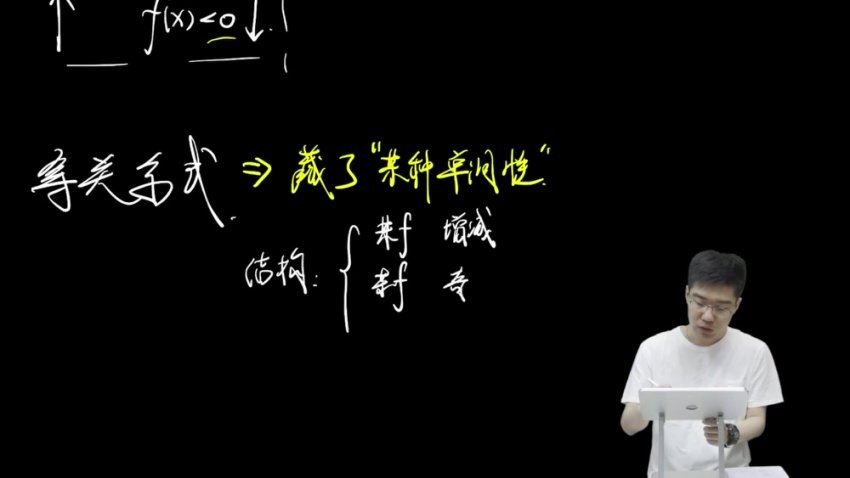 ↑ f(x)<0 ↓
导关系式. ⇒ 藏了“某种单调性”.
结构: { 某f 增减
某f